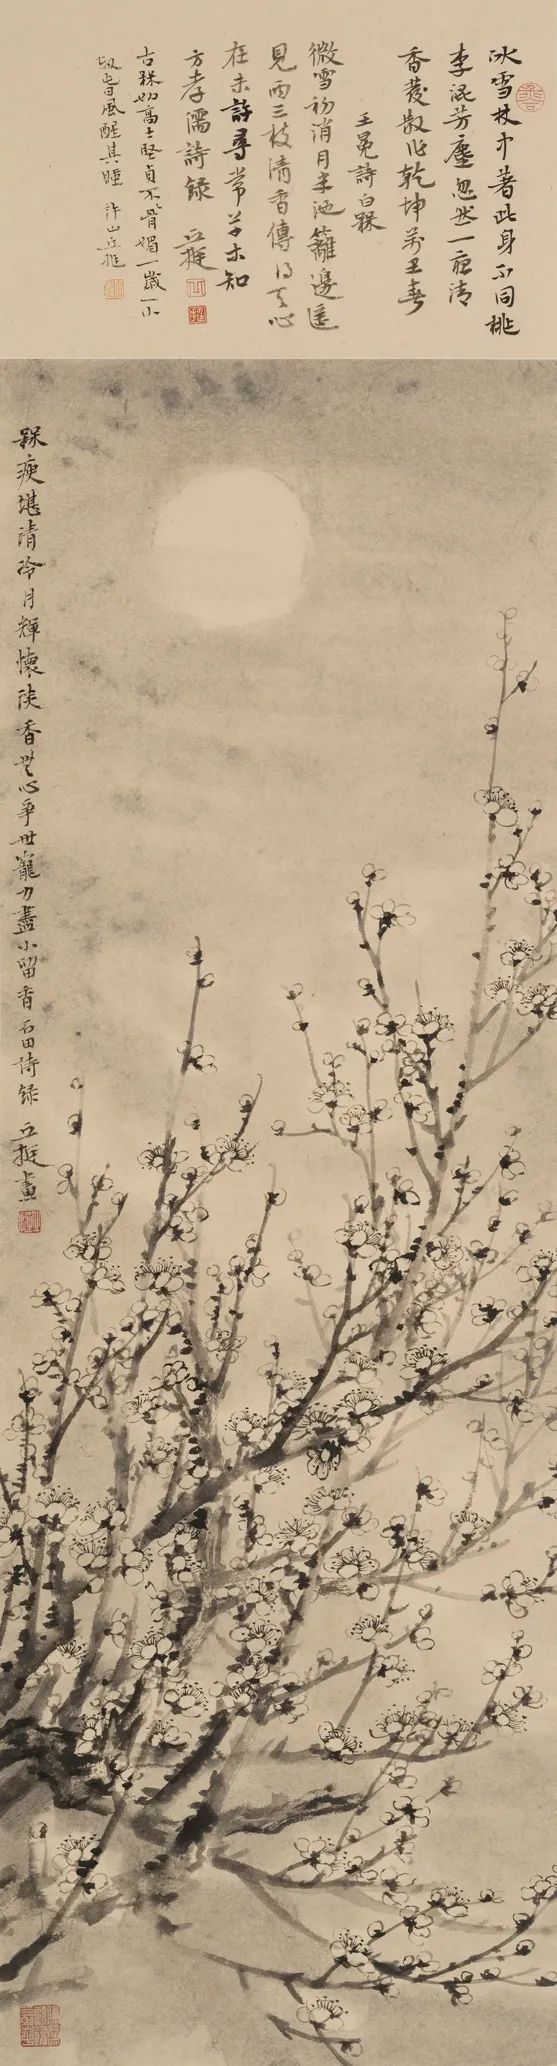 冰雪林中著此身不同桃
李混芳塵忽然一夜清
香發散作乾坤萬里春
王冕詩白槑
微雪初消月半池籬邊遙
見兩三枝清香傳得天心
在未許尋常草木知
方孝孺詩錄 丘挺
古槑如高士堅貞不骨媚一歲一小
劫春風醒其睡 丘挺
槑瘦堪清冷月輝懷香無心爭世寵力盡小留香石田詩錄 丘挺畫